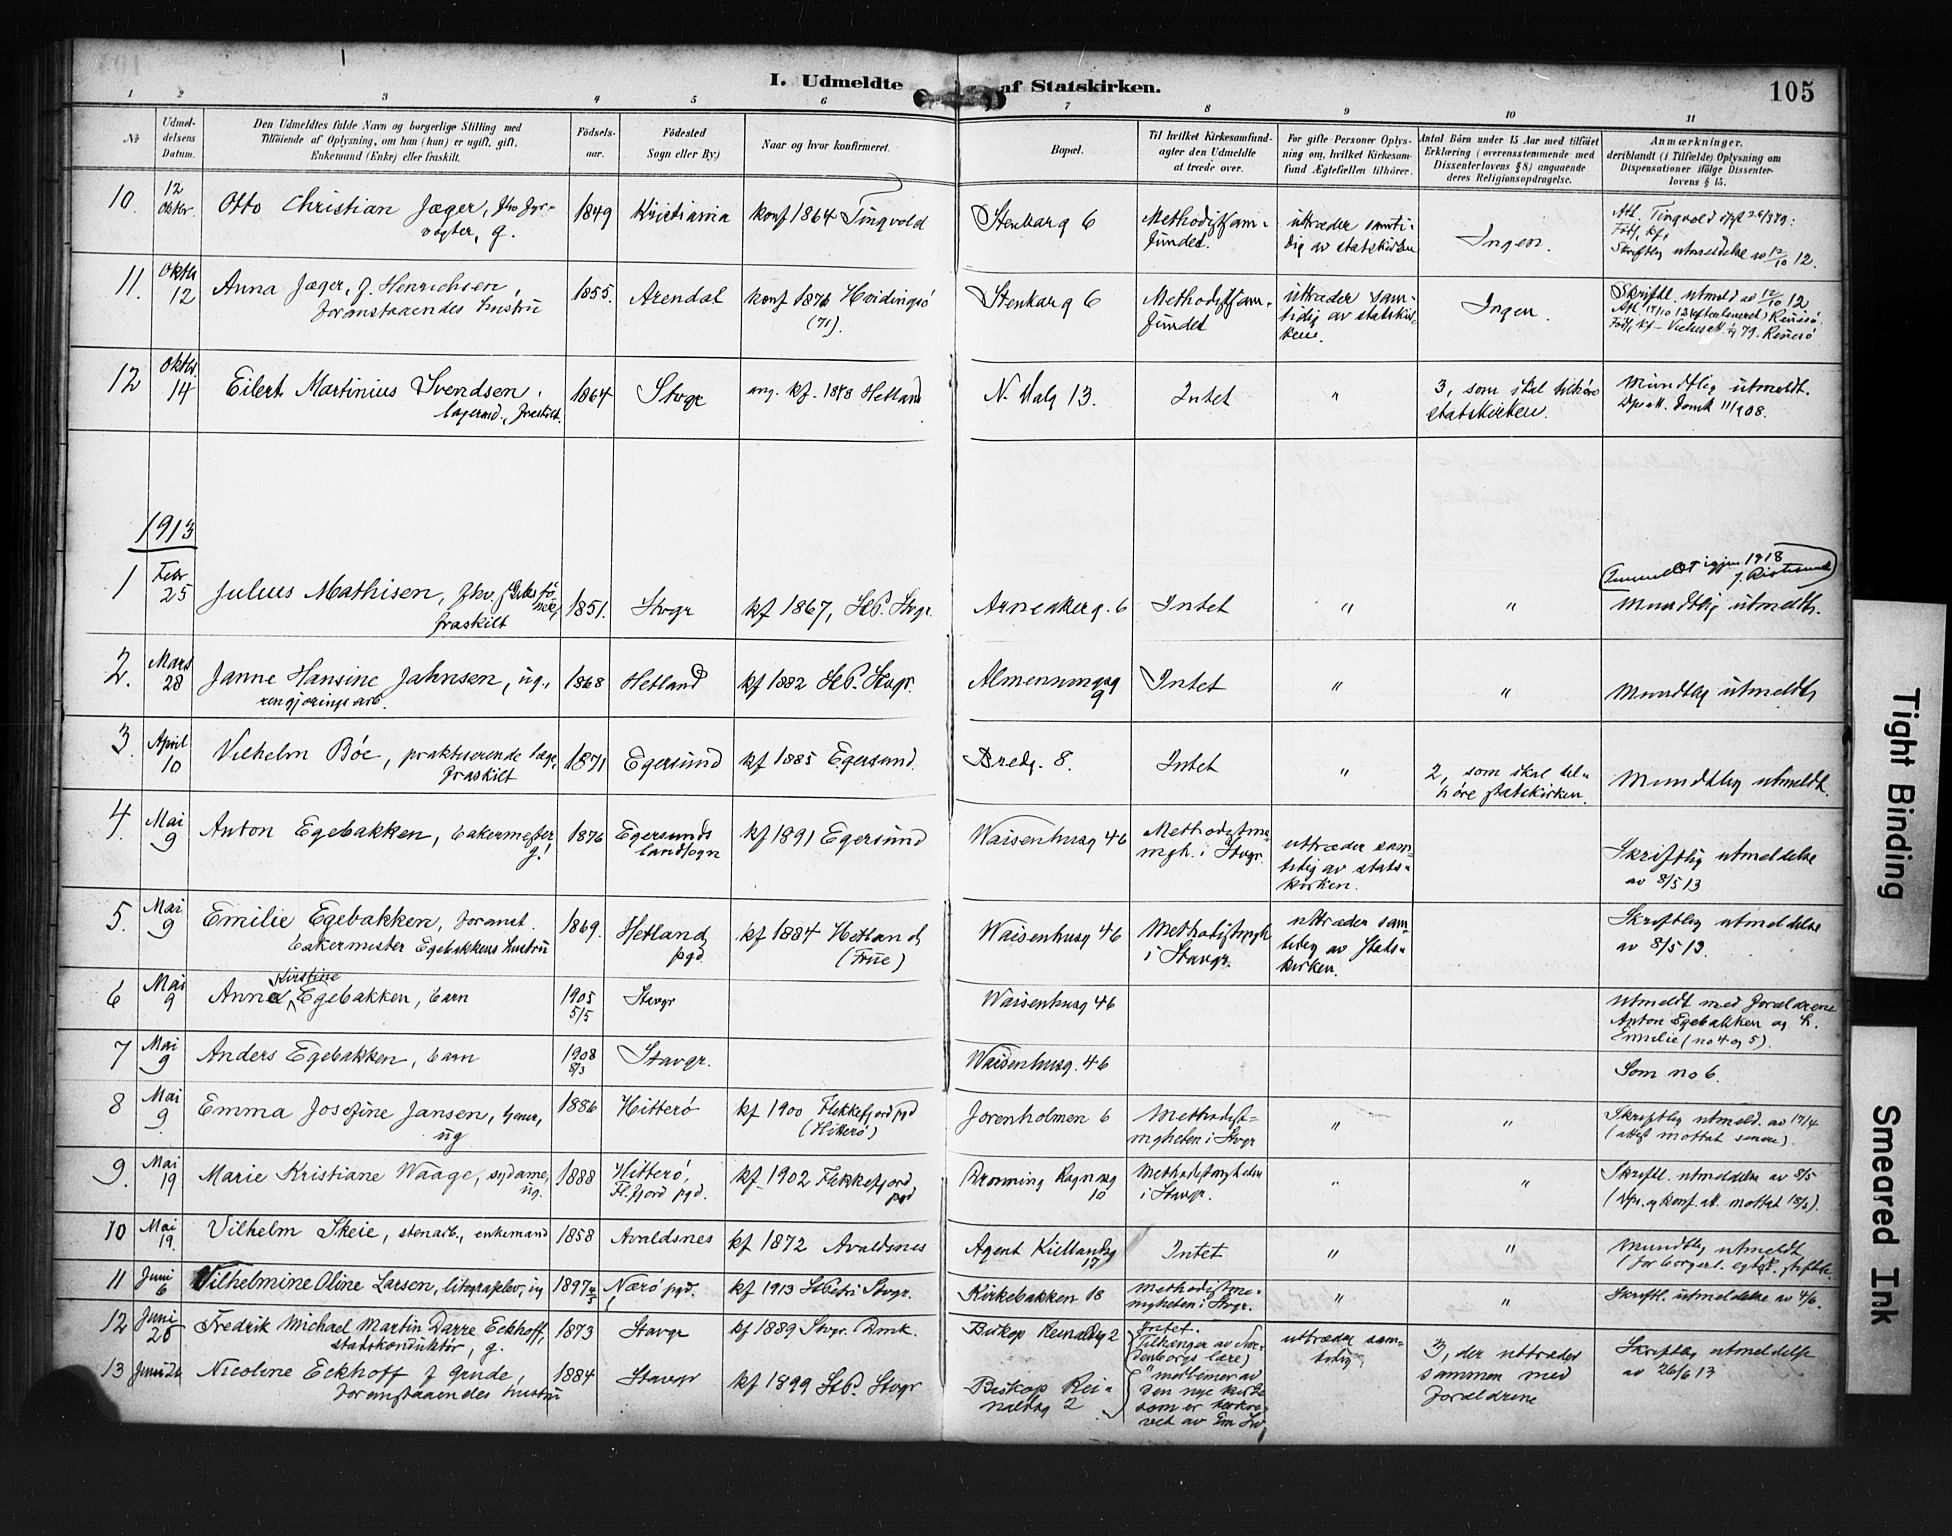 I. Udmeldte af Statskirken.
105
1 2 3 4 5 6 7 8 9 10 11
No
Udmel-
delsens
Datum.
Den Udmeldtes fulde Navn og borgerlige Stilling med
Tilföiende af Oplysning, om han (hun) er ugift, gift,
Enkemand (Enke) eller fraskilt.
Födsels-
aar.
Födested
Sogn eller By.)
Naar og hvor konfirmeret.
Bopæl.
Til hvilket Kirkesamfund-
agter den Udmeldte
at træde over.
For gifte Personer Oplys-
ning om, hvilket Kirkesam-
fund Ægtefællen tilhörer.
Antal Börn under 15 Aar med tilföiet
Erklæring (overensstemmende med
Dissenterlovens § 8) angaaende
deres Religionsopdragelse.
Anmærkninger.
deriblandt (i Tilfælde) Oplysning om
Dispensationer ifölge Dissenter-
lovens § 15.
10. 12 Oktbr. Otto Christian Jæger, fhv. fyr-
vogter, g.
1849 Kristiania konf 1864 Tingvold Stenkarg 6
Methodistsam-
fundet.
uttræder samti-
dig av statskirken
Ingen.
Att. Tingvold
Skriftlig utmeldelse av 12/10 12.
11. Oktbr 12 Anna Jæger, f. Henrichsen,
foranstaaendes hustru
1855. Arendal konf 1876 Hvidingsö
(71).
Stenkarg 6
Methodistsam-
fundet
uttræder sam-
tidig av statskir-
ken.
Ingen.
Skriftl. utmeld av 12/10 12
12 Oktbr. 14 Eilert Martinius Svendsen,
lagermd., fraskilt.
1864 Stvgr ang. kf. 1878 Hetland N. Dalg 13. Intet "
3, som skal tilhöre
statskirken.
Mundtlig utmeldt.
1913
1 Febr 25 Julius Mathisen, fhv.
fraskilt
1851. Stvgr kf 1867, St.P. Stvgr. Arneakerg. 6 Intet " "
igjen 1918
Mundtlig utmeldt.
2. Mars 28 Janne Hansine Jahnsen, ug.,
rengjöringsarb.
1868 Hetland kf 1882 St.P. Stvgr. Almenningsg
9
Intet " " Mundtlig utmeldt
3. April 10 Vilhelm Böe, praktiserende læge,
fraskilt
1871 Egersund kf 1885 Egersund. Bredg. 8. Intet "
2, som skal til-
höre statskirken.
Mundtlig utmeldt.
4. Mai 9 Anton Egebakken, bakermester,
g.
1876 Egersunds
landsogn
kf 1891 Egersund Waisenhusg 46
Methodistme-
nigh. i Stvgr.
uttræder sam-
tidig av stats-
kirken.
Skriftlig utmeldelse
av 8/5 13
5. Mai 9 Emilie Egebakken, foranst.
bakermester Egebakkens hustru
1869. Hetland
pgd.
kf 1884 Hetland
(Frue)
Waisenhusg 46
i Stavgr.
uttræder sam-
tidig av stats-
kirken.
Skriftlig utmeldelse
av 8/5 13.
6 Mai 9 Anna Kirstine Egebakken, barn
1905
5/5
Stavgr Waisenhusg 46
utmeldt med forældrene
Anton Egebakken og h.
Emilie (no 4 og 5).
7 Mai 9 Anders Egebakken, barn
1908
8/3
Stavgr. Waisenhusg. 46 Som no 6.
8 Mai 9. Emma Josefine Jansen, tjener,
ug
1886 Hitterö kf 1900 Flekkefjord pgd
(Hitterö)
Jorenholmen 6
Methodist-
mgheten i Stvgr
" "
Skriftlig utmeld. av 17/4
(attest mottat senere).
9. Mai 19 Marie Kristiane Waage, sydame,
ug.
1888 Hitterö,
Fl.fjord pgd.
kf. 1902 Flekkefjord
pgd
Dronning Ragnasg
10
Methodistmgheten
i Stavgr.
" "
Skriftl. utmeldelse av 8/5
(Dps. og konf. att. mottat 18/5).
10 Mai 19. Vilhelm Skeie, stenarb., enkemand 1858 Avaldsnes kf 1872 Avaldsnes
Agent Kiellandsg
17
Intet " "
Mundtlig utmeldt
(for borgerl. egtesk. stiftelse.
11 Juni 6 Vilhelmine Oline Larsen, litografelev, ug 1897 Nærö pgd. kf 1913 St.Petri Stvgr. Kirkebakken 18
Methodistme-
nigheten i Stvgr.
" " Skriftl. utmeldelse av 4/6.
12 Juni 26 Fredrik Michael Martin Darre Eckhoff,
statskonduktör, g.
1873 Stavgr kf 1889 Stvgr. Dmk. Biskop Reinaldsg 2
Intet.
(Tilhænger av Sve-
denborgs lære)
uttræder sam-
tidig
3, der uttræder
sammen med
forældrene
Skriftlig utmeldelse
av 26/6 13
13 Juni 26 Nicoline Eckhoff f Grude,
foranstaaendes hustru
1884 Stavgr kf 1899 St.P. Stvgr
Biskop Rei-
naldsg 2
" medlemer av
den nye kirke
som er
vet av Em Sw.
Tight Binding
Smeared Ink